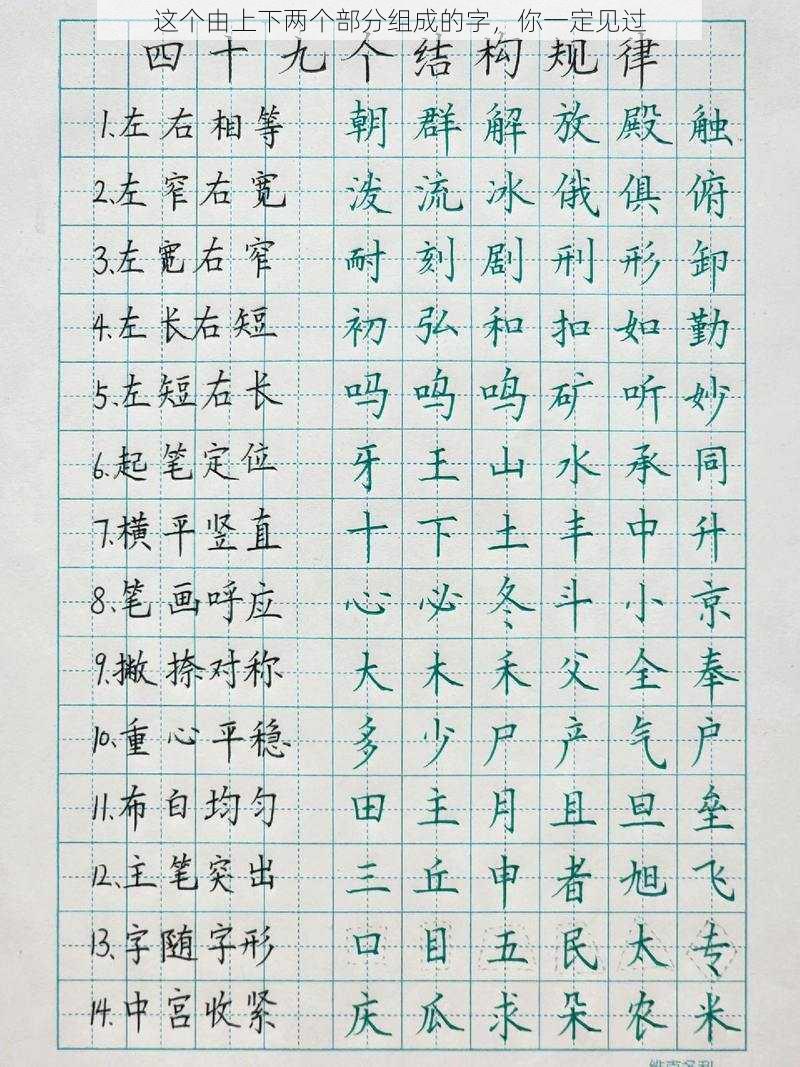 这个由上下两个部分组成的字，你一定见过
四十九个结构规律
1.左右相等 朝群解放殿触
2.左窄右宽 泼流冰俄俱俯
3.左宽右窄 耐刻剧刑形卸
4.左长右短 初弘和扣如勤
5.左短右长 吗鸣鸣矿听妙
6.起笔定位 牙王山水承同
7.横平竖直 十下土丰中升
8.笔画呼应 心必冬斗小京
9.撇捺对称 大木禾父全奉
10.重心平稳 多少尸产气户
11.布白均匀 田主月且旦垒
12.主笔突出 三丘申者旭飞
13.字随字形 口目五民太专
14.中宫收紧 庆瓜求朵农米